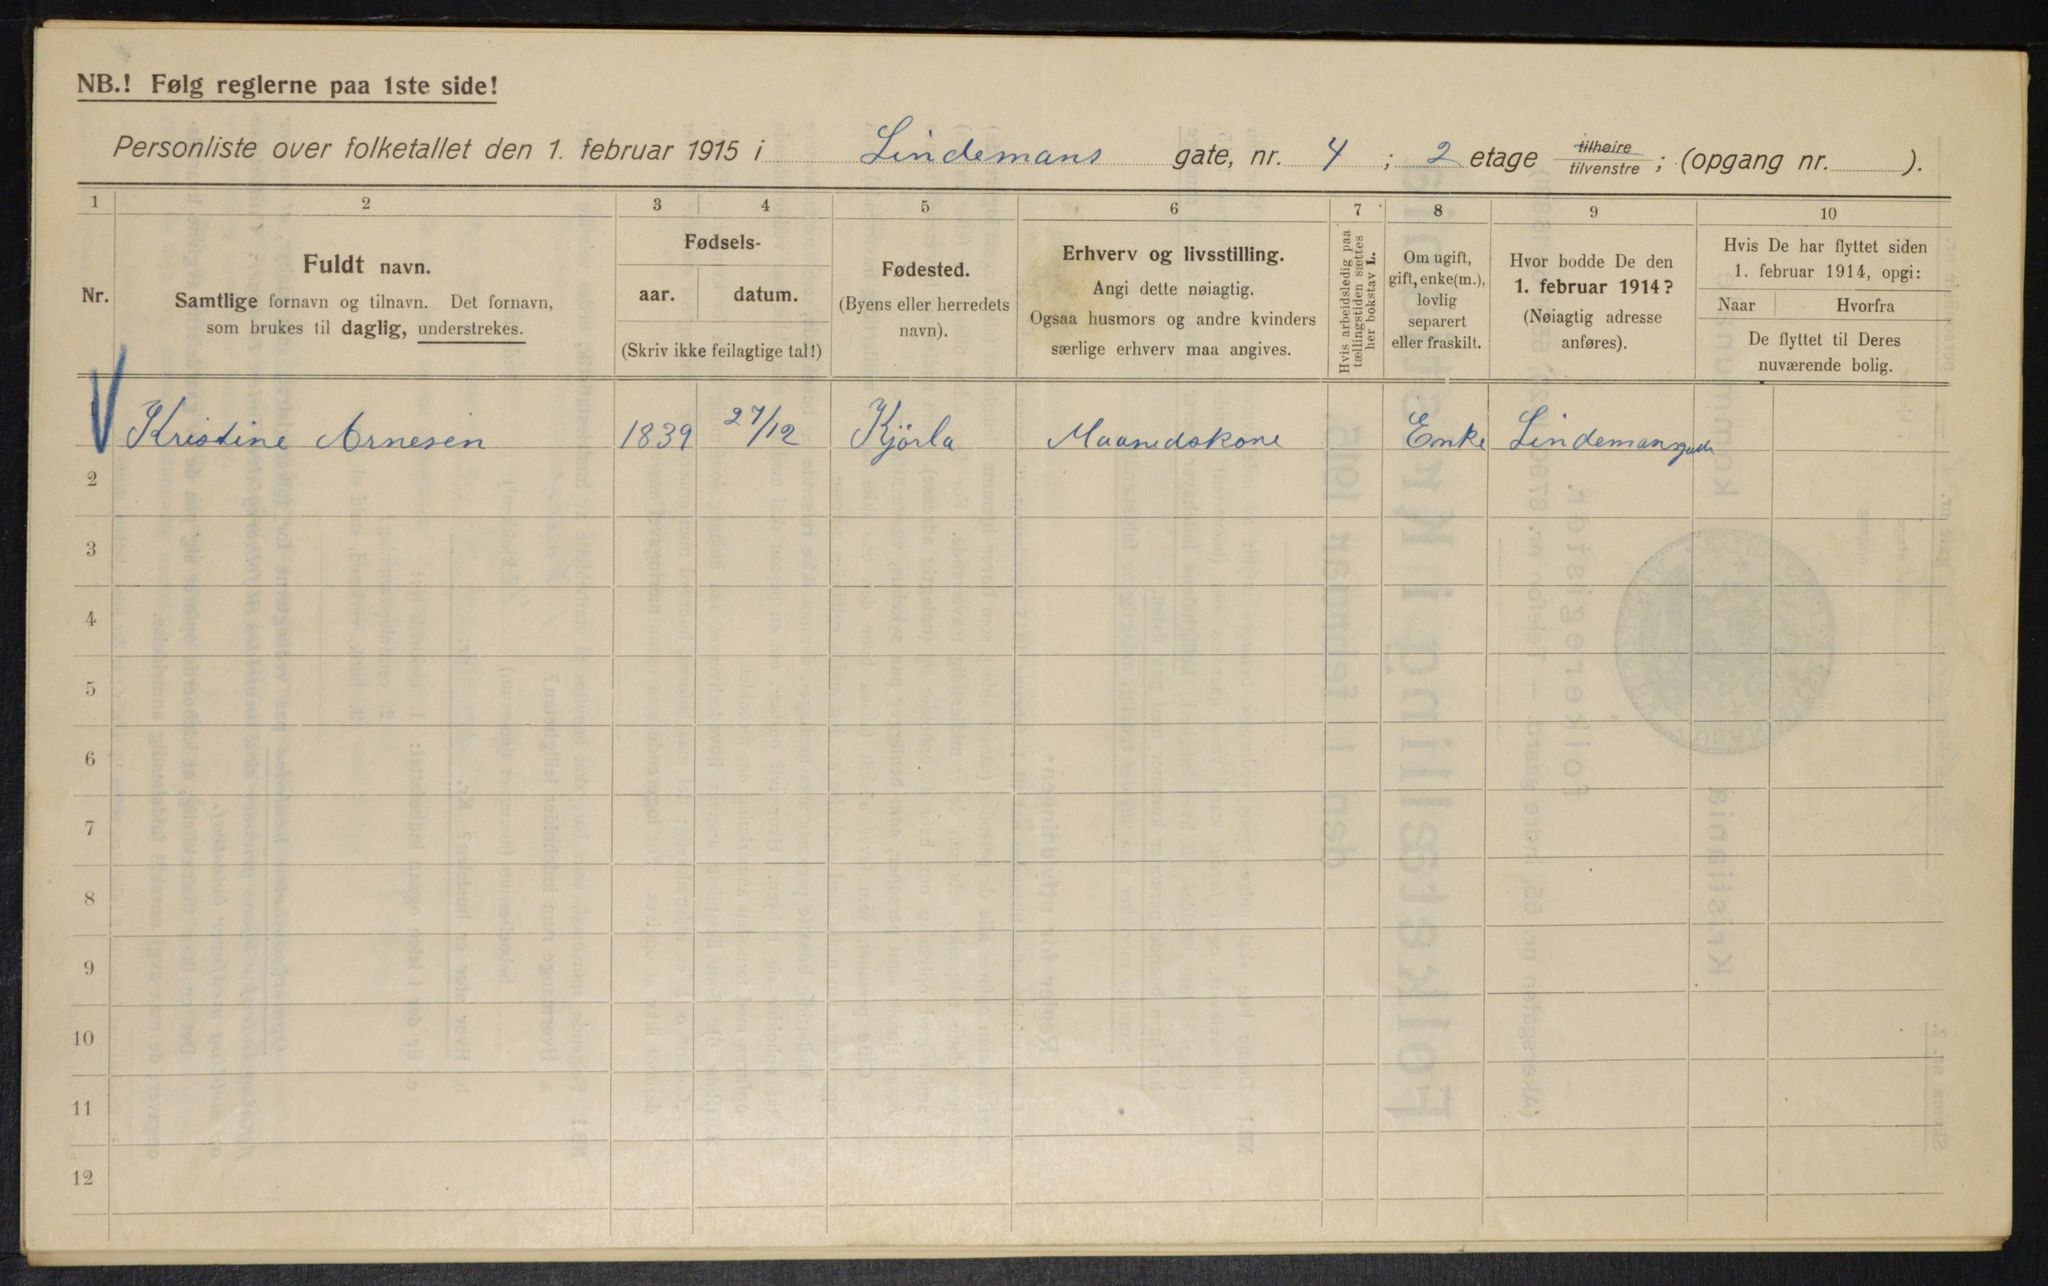 NB.! Følg reglerne paa 1ste side!
Personliste over folketallet den 1. februar 1915 i Lindemans gate, nr. 4 ; 2 etage tilhøire / tilvenstre ; (opgang nr. ).
1 2 3 4 5 6 7 8 9 10
Nr.
Fuldt navn.
Samtlige fornavn og tilnavn. Det fornavn,
som brukes til daglig, understrekes.
Fødsels-
aar. datum.
(Skriv ikke feilagtige tal!)
Fødested.
(Byens eller herredets
navn).
Erhverv og livsstilling.
Angi dette nøiagtig.
Ogsaa husmors og andre kvinders
særlige erhverv maa angives.
Hvis arbeidsledig paa
tællingstiden sættes
her bokstav L.
Om ugift,
gift, enke(m.),
lovlig
separert
eller fraskilt.
Hvor bodde De den
1. februar 1914?
(Nøiagtig adresse
anføres).
Hvis De har flyttet siden
1. februar 1914, opgi:
Naar Hvorfra
De flyttet til Deres
nuværende bolig.
Kristine Arnesen 1839 27/12 Kjørla Maanedskone Enke Lindemansgade
2
3
4
5
6
7
8
9
10
11
12